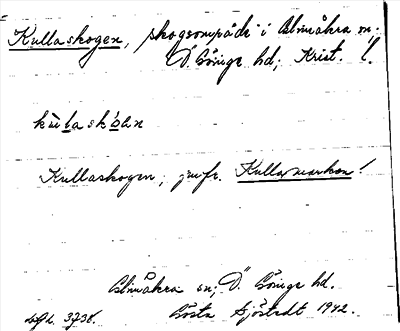 Kullaskogen, skogsområde i Almåkra sn;
Ö. Göinge hd; Krist. l.
Kullaskogen; jmfr. Kullamarken!
Almåkra sn; Ö. Göinge hd.
Gösta Sjöstedt 1942.